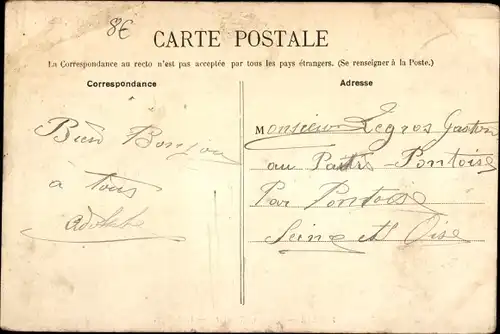 8€
CARTE POSTALE
La Correspondance au recto n'est pas acceptée par tous les pays étrangers. (Se renseigner à la Poste.)
Correspondance
Adresse
Bien Bonjour
à tous
Adolphe
Monsieur Legros Gaston
au Pontoise
Par Pontoise
Seine et Oise